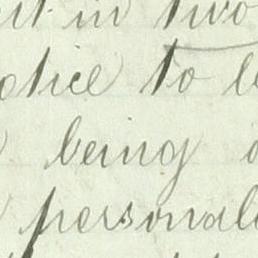 in two
notice to
being
personal